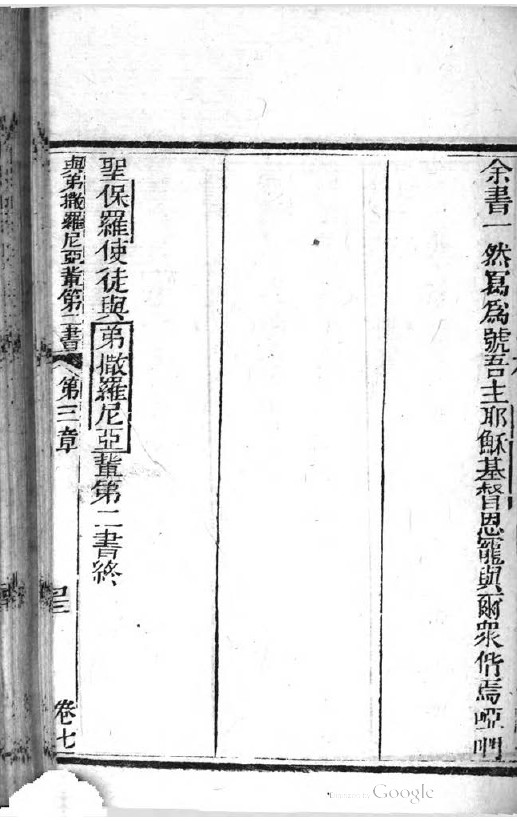 余書一然寫為號吾主耶穌基督恩寵與爾衆偕焉啞們
聖保羅使徒與弟撒羅尼亞輩第二書終
與弟撒羅尼亞輩第二書 第三章 卷七
Google